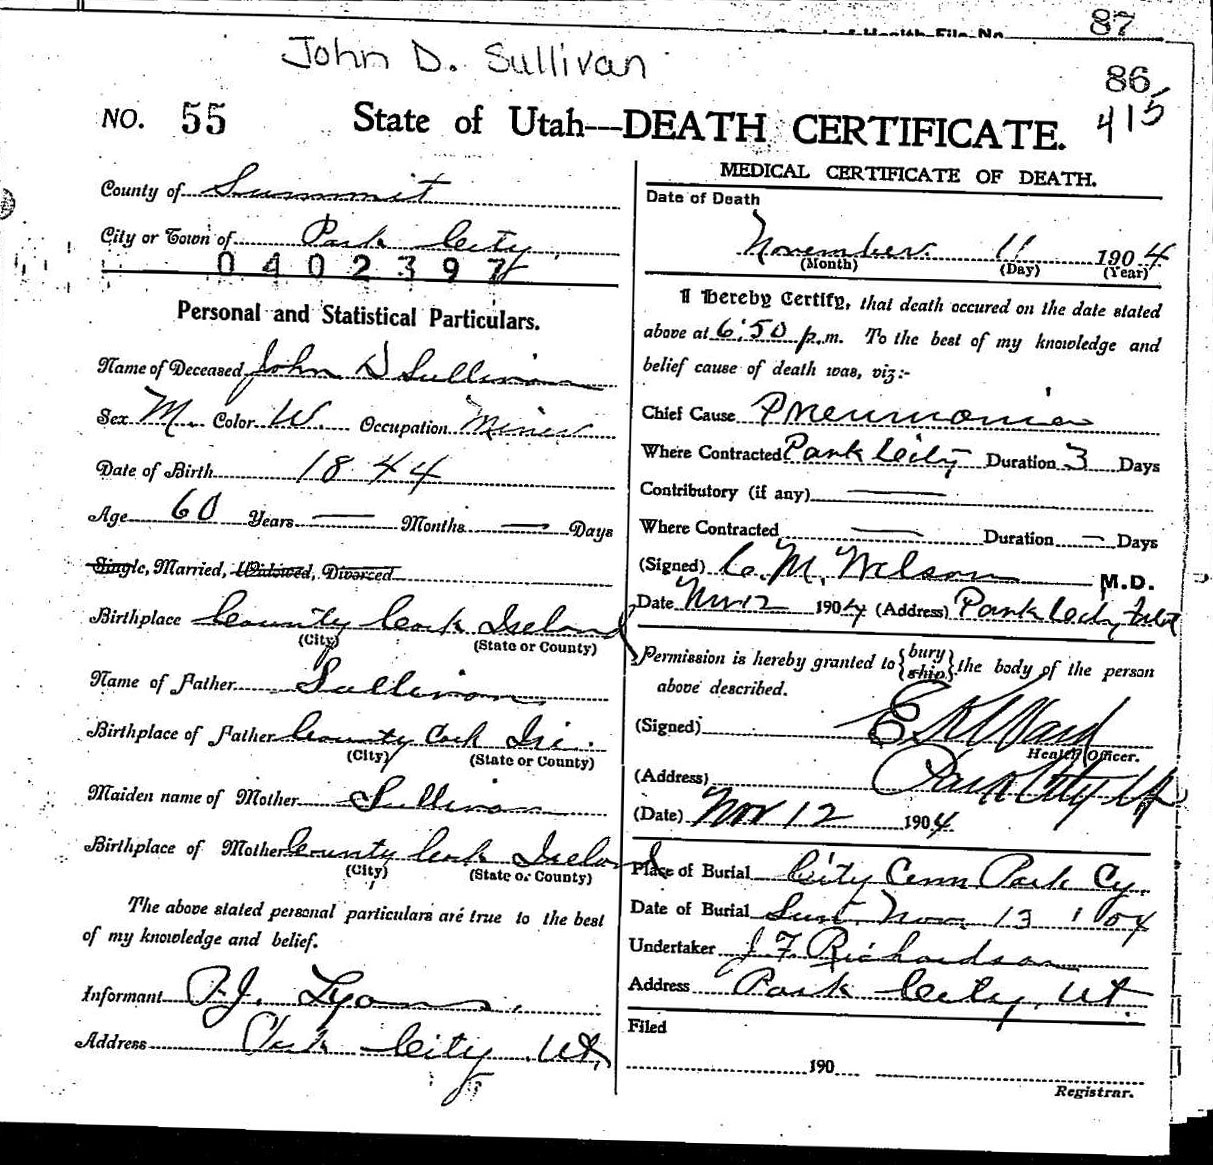 87
John D. Sullivan
86
415
NO. 55 State of Utah---DEATH CERTIFICATE.
County of Summit
City or Town of Park City
0402397
Personal and Statistical Particulars.
Name of Deceased John D Sullivan
Sex M. Color W. Occupation Miner
Date of Birth 1844
Age 60 Years — Months — Days
Single, Married, Widowed, Divorced
Birthplace County Cork Ireland
(City) (State or County)
Name of Father Sullivan
Birthplace of Father County Cork Ire.
(City) (State or County)
Maiden name of Mother Sullivan
Birthplace of Mother County Cork Ireland
(City) (State or County)
The above stated personal particulars are true to the best
of my knowledge and belief.
Informant P.J. Lyons.
Address Park City Ut
MEDICAL CERTIFICATE OF DEATH.
Date of Death
November 11 1904
(Month) (Day) (Year)
I Hereby Certify, that death occured on the date stated
above at 6:50 p.m. To the best of my knowledge and
belief cause of death was, viz:-
Chief Cause Pneumonia
Where Contracted Park City Duration 3 Days
Contributory (if any) —
Where Contracted — Duration — Days
(Signed) C. M. Wilson M.D.
Date Nov 12 1904 (Address) Park City Utah
Permission is hereby granted to {bury ship} the body of the person
above described.
(Signed) Ward
Health Officer.
(Address) Park City Ut
(Date) Nov 12 1904
Place of Burial City Cem Park Cy.
Date of Burial Nov 13 1904
Undertaker J F Richardson
Address Park City, Ut
Filed
190
Registrar.